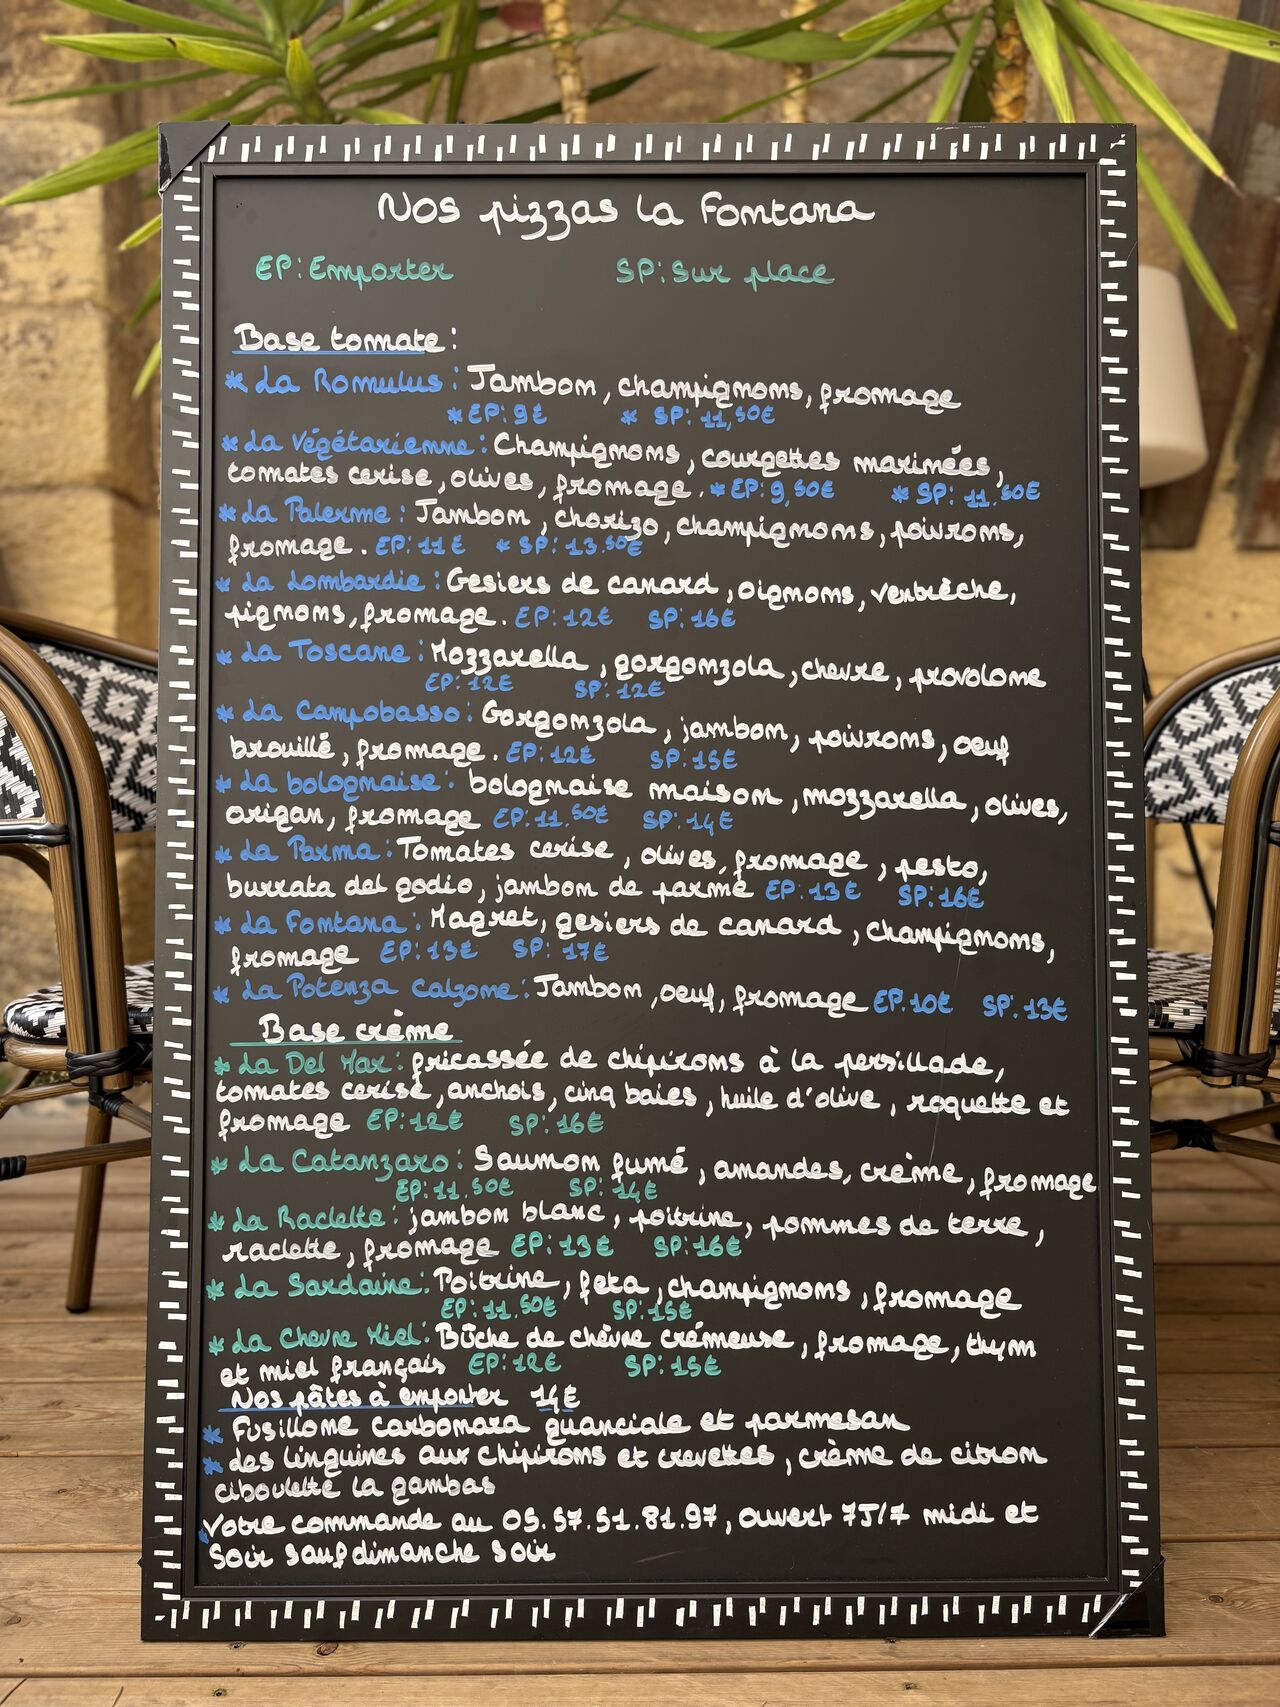 Nos pizzas la Fontana
EP: Emporter SP: Sur place
Base tomate :
* La Romulus : Jambon, champignons, fromage
* EP: 9€ * SP: 11,50€
* La Végétarienne : Champignons, courgettes marinées,
tomates cerise, olives, fromage. * EP: 9,50€ * SP: 11.50€
* La Palerme : Jambon, chorizo, champignons, poivrons,
fromage. EP: 11€ * SP: 13.50€
* La Lombardie : Gesiers de canard, oignons, ventrèche,
pignons, fromage. EP: 12€ SP: 16€
* La Toscane : Mozzarella, gorgonzola, chevre, provolone
EP: 12€ SP: 12€
* La Campobasso : Gorgonzola, jambon, poivrons, oeuf
brouillé, fromage. EP: 12€ SP: 15€
* La bolognaise : bolognaise maison, mozzarella, olives,
origan, fromage EP: 11.50€ SP: 14€
* La Parma : Tomates cerise, olives, fromage, pesto,
burrata del godio, jambon de parme EP: 13€ SP: 16€
* La Fontana : Magret, gesiers de canard, champignons,
fromage EP: 13€ SP: 17€
* La Potenza calzone : Jambon, oeuf, fromage EP. 10€ SP: 13€
Base crème
* La Del Mar : fricassée de chipirons à la persillade,
tomates cerise, anchois, cinq baies, huile d'olive, roquette et
fromage EP: 12€ SP: 16€
* La Catanzaro : Saumon fumé, amandes, crème, fromage
EP: 11.50€ SP: 14€
* La Raclette : jambon blanc, poitrine, pommes de terre,
raclette, fromage EP: 13€ SP: 16€
* La Sardaine : Poitrine, feta, champignons, fromage
EP: 11.50€ SP: 15€
* La Chevre Miel : Bûche de chèvre crémeuse, fromage, thym
et miel français EP: 12€ SP: 15€
Nos pâtes à emporter 14€
* Fusillone carbonara guanciale et parmesan
* des linguines aux chipirons et crevettes, crème de citron
ciboulette la gambas
* Votre commande au 05.57.51.81.97, ouvert 7J/7 midi et
Soir sauf dimanche soir